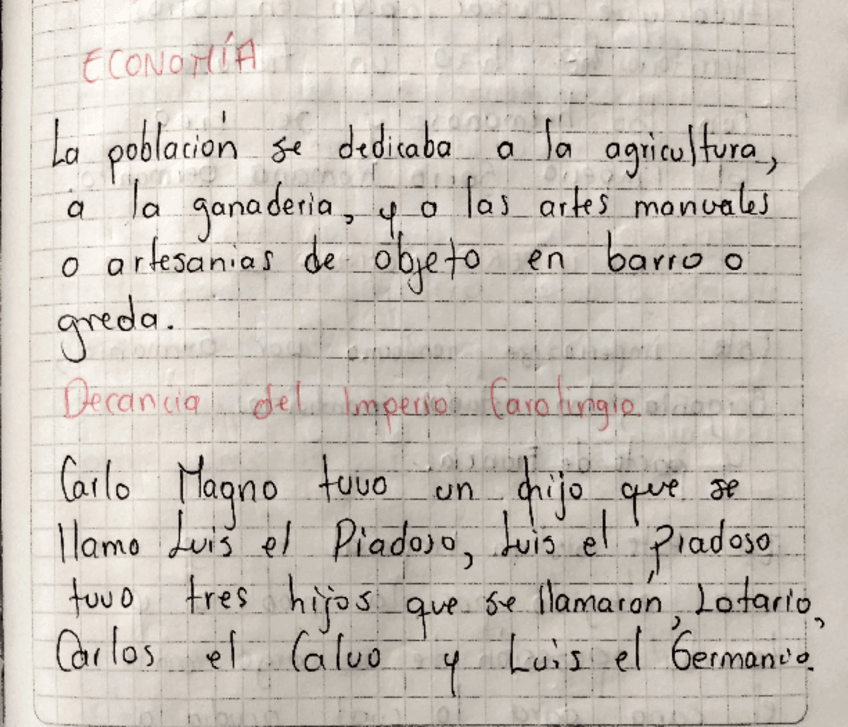 ECONOMÍA
La población se dedicaba a la agricultura,
a la ganaderia, y a las artes manuales
o artesanias de objeto en barro o
greda.
Decancia del Imperio Carolingio.
Carlo Magno tuvo un hijo que se
llamo Luis el Piadoso, Luis el Piadoso
tuvo tres hijos que se llamarón, Lotario,
Carlos el Calvo y Luis el Germanico.